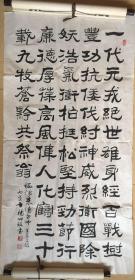 一代元戎絕世雄身經百戰樹
豐功抗倭伐討神威烈衛國除
妖浩氣衝柏挺松堅持勁節行
廉德厚葆高風偉人化鶴三十
載九牧蒼黔共祭翁